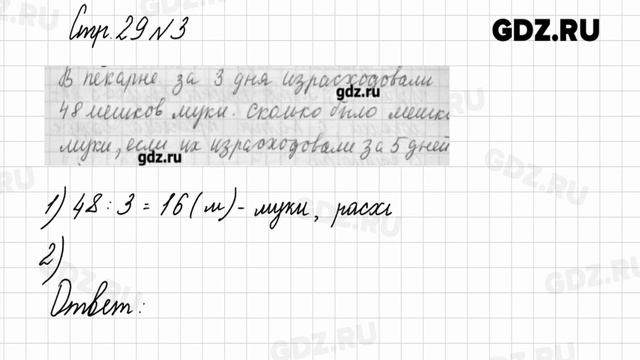 Стр. 29 № 3
GDZ.RU
В пекарне за 3 дня израсходовали
gdz.ru
48 мешков муки. Сколько было мешк
муки, если их израсходовали за 5 дней
gdz.ru
1) 48 : 3 = 16 (м) - муки, расх
2)
Ответ:
GDZ.RU
GDZ.RU
GDZ.RU